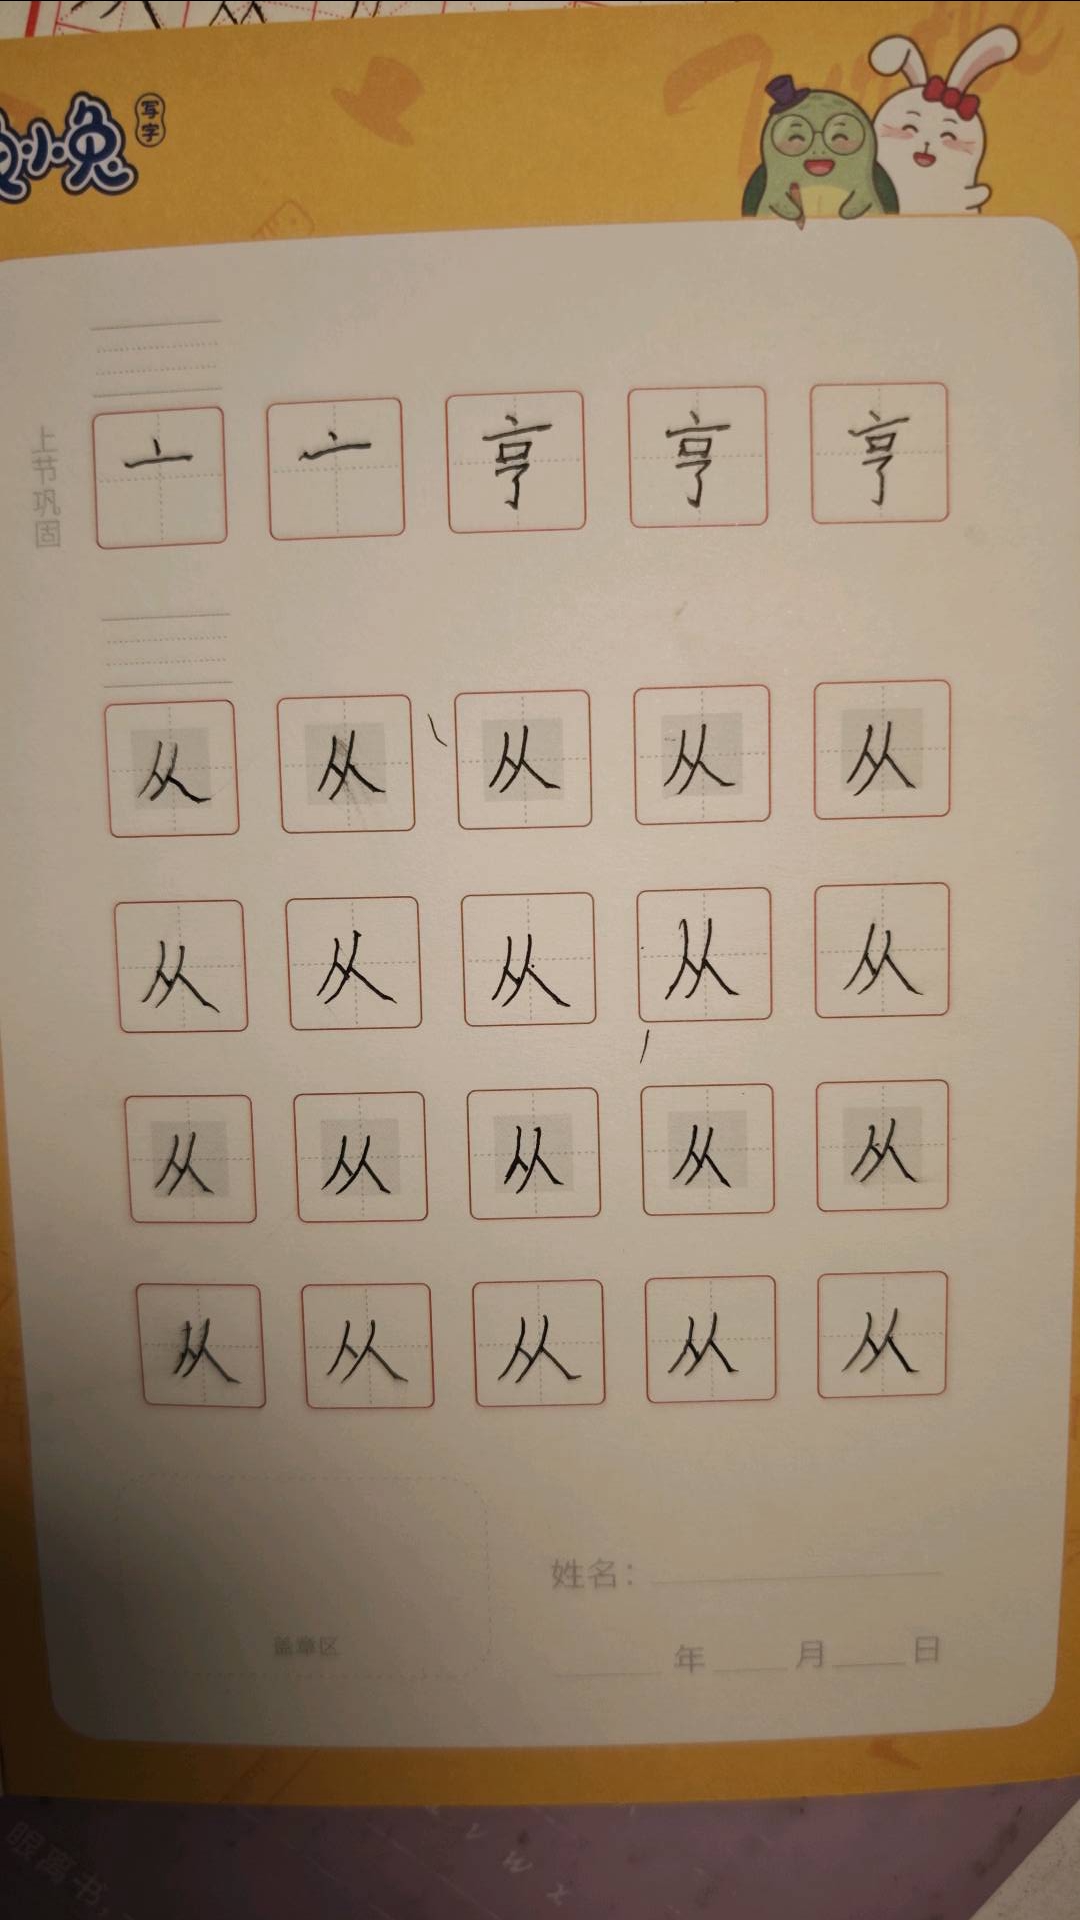 小兔
写字
上节巩固
亠 亠 亨 亨 亨
从 从 从 从 从
从 从 从 从 从
从 从 从 从 从
从 从 从 从 从
姓名:
盖章区
年 月 日
眼离书,
w x